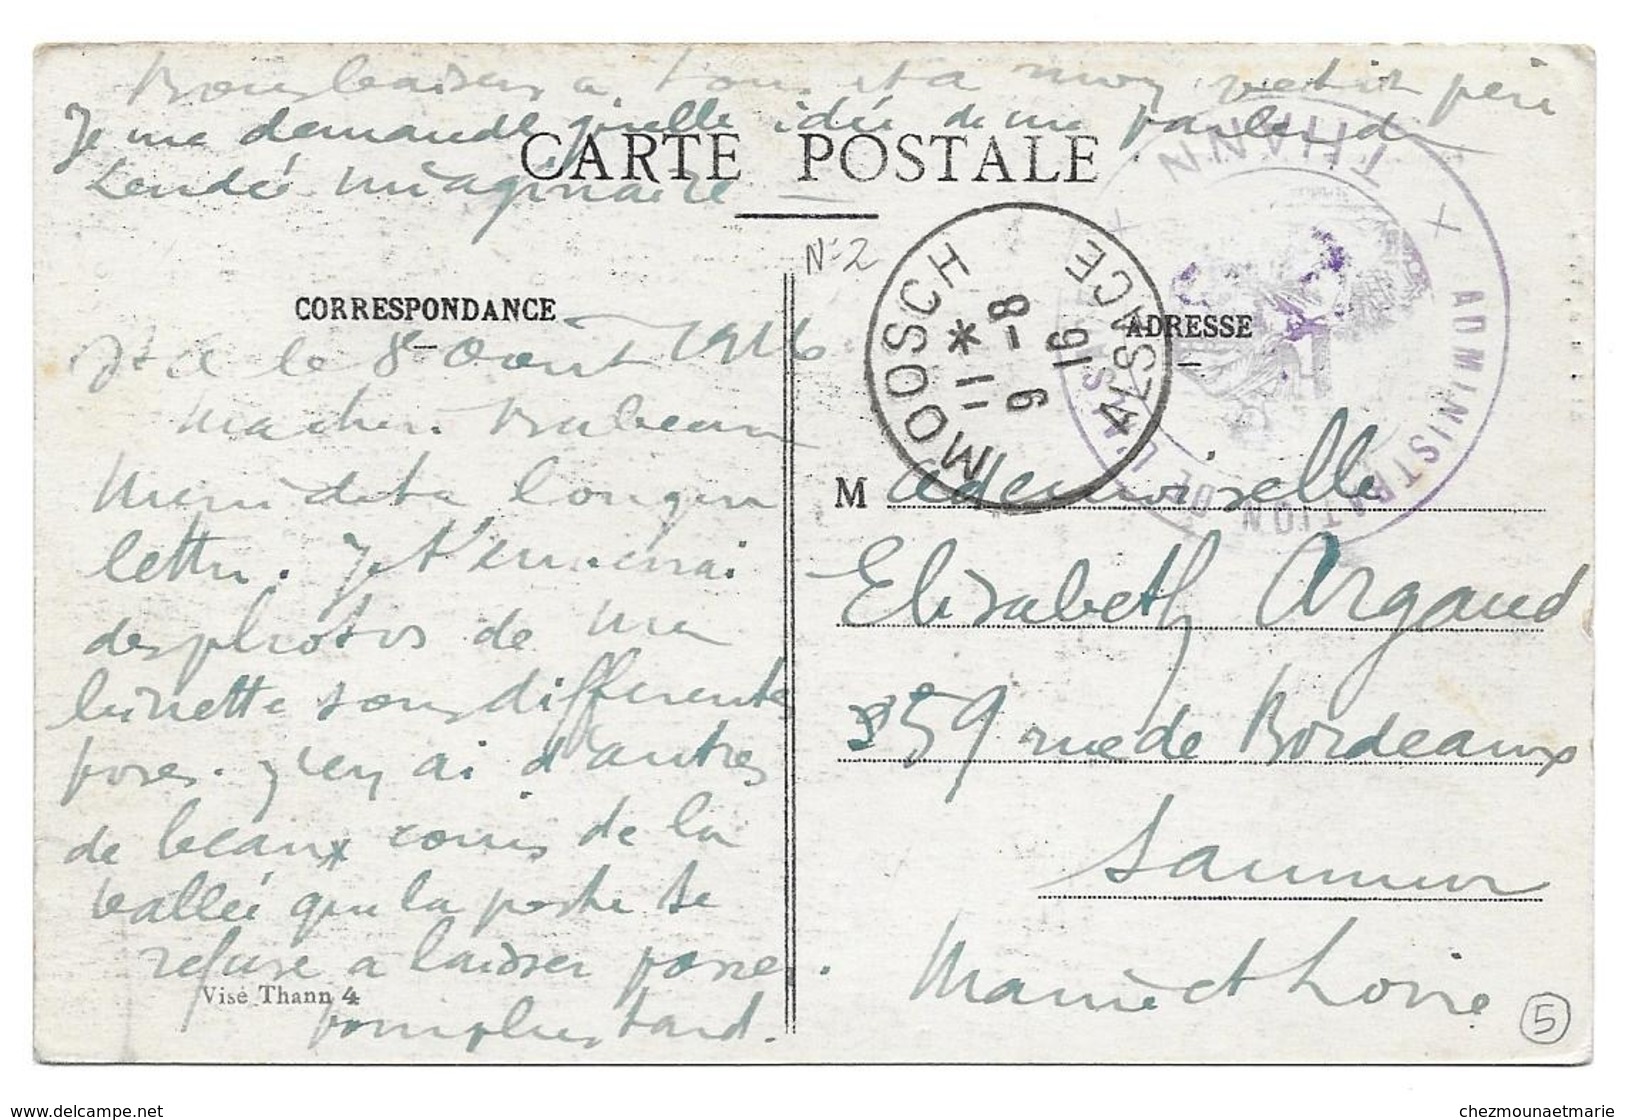 Bons baisers a tous et a mon petit père
Je me demande quelle idée de me parler de
imaginaire
CARTE POSTALE
N° 2
CORRESPONDANCE
le 8 Aout 1916
Ma chere
Merci de ta longue
lettre. Je t'enverrai
des photos de ma
binette sous differentes
poses. J'en ai d'autres
de beaux coins de la
vallée que la poste se
refuse a laisser passer.
pour plus tard.
Visé Thann 4
MOOSCH
ALSACE
* 11
9 - 8
16
ADMINISTRATION DE
THANN
ADRESSE
Mademoiselle
Elisabeth Argaud
59 rue de Bordeaux
Saumur
Maine et Loire
5
www.delcampe.net
chezmounaetmarie